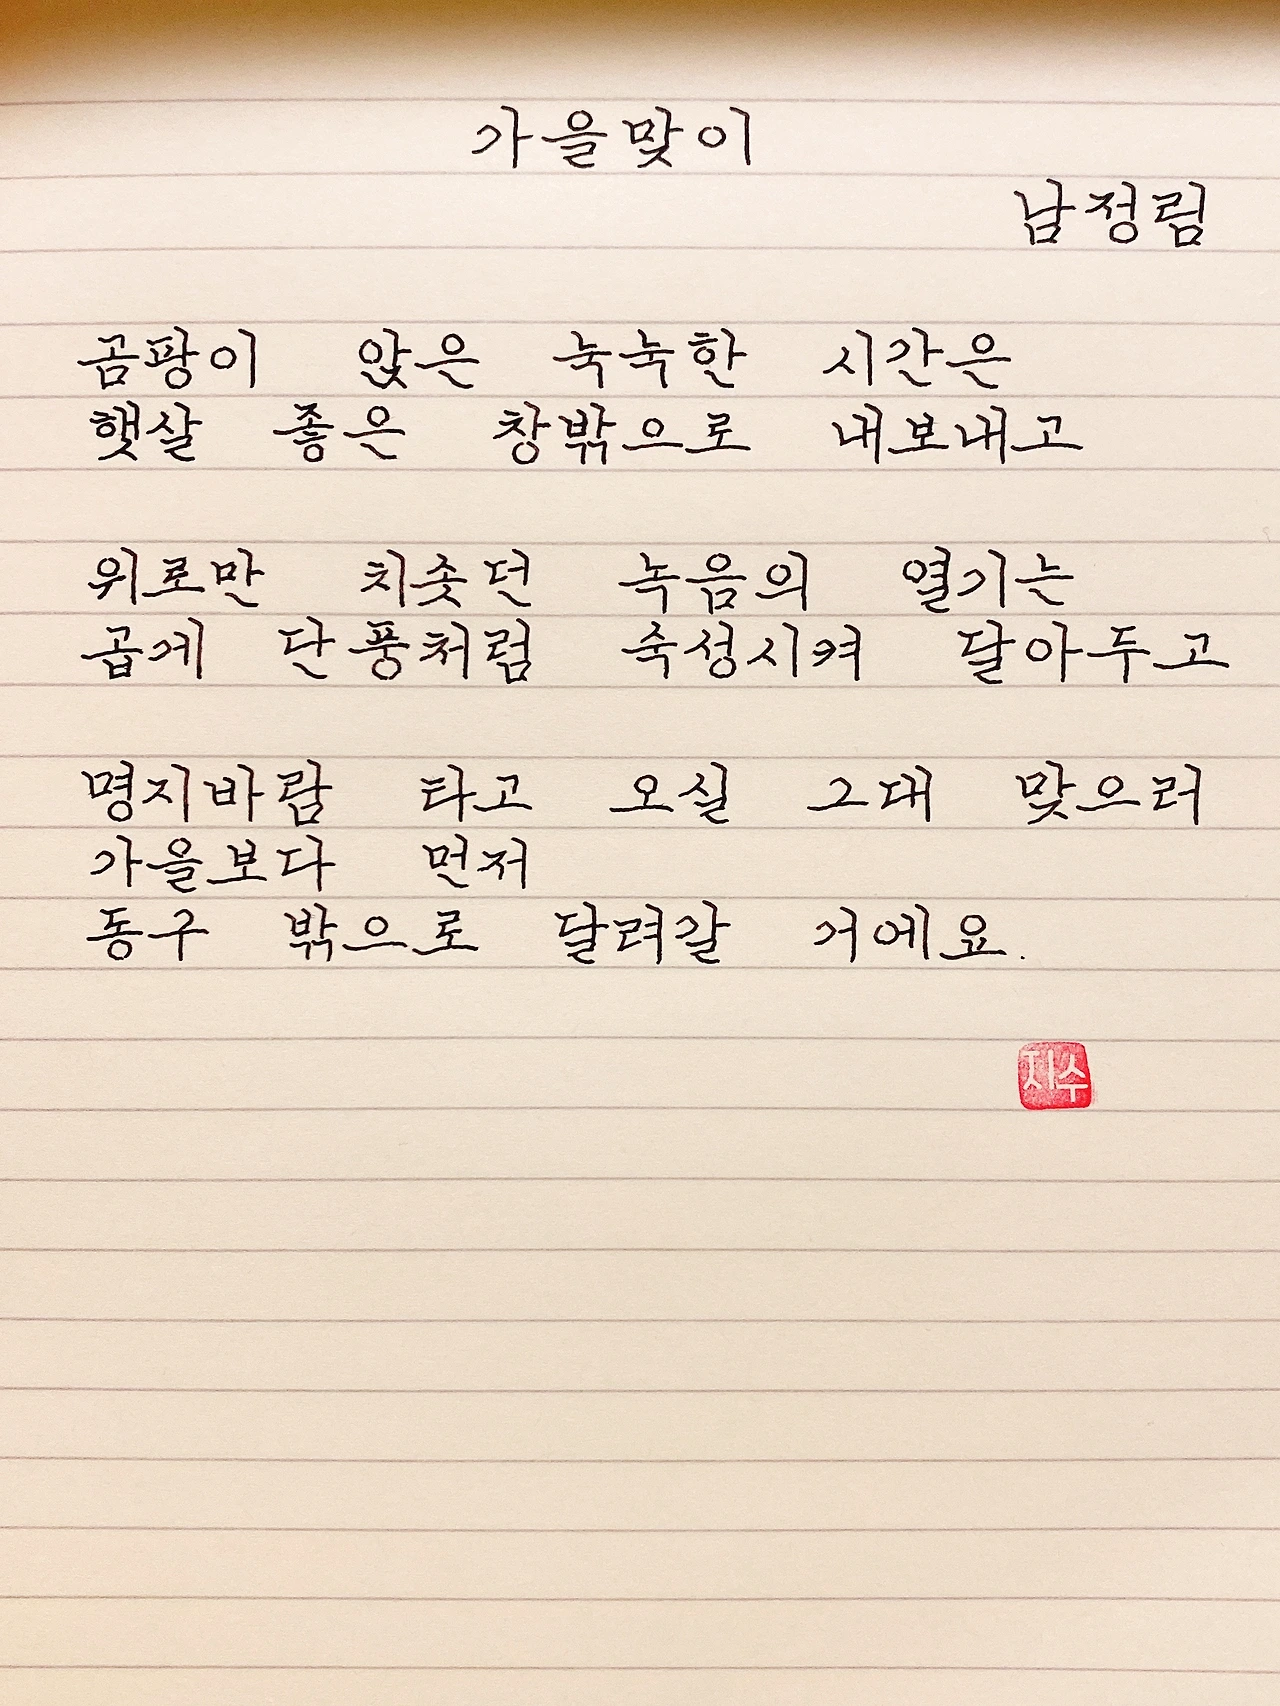 가을맞이
남정림
곰팡이 앉은 눅눅한 시간은
햇살 좋은 창밖으로 내보내고
위로만 치솟던 녹음의 열기는
곱게 단풍처럼 숙성시켜 달아두고
명지바람 타고 오실 그대 맞으러
가을보다 먼저
동구 밖으로 달려갈 거에요.
지수